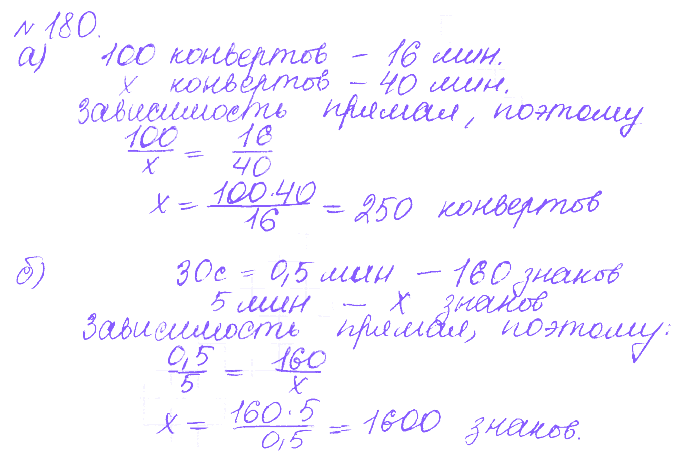 № 180.
а) 100 конвертов – 16 мин.
х конвертов – 40 мин.
Зависимость прямая, поэтому
100/х = 16/40
х = 100·40/16 = 250 конвертов
б) 30с = 0,5 мин – 160 знаков
5 мин – х знаков
Зависимость прямая, поэтому:
0,5/5 = 160/х
х = 160·5/0,5 = 1600 знаков.